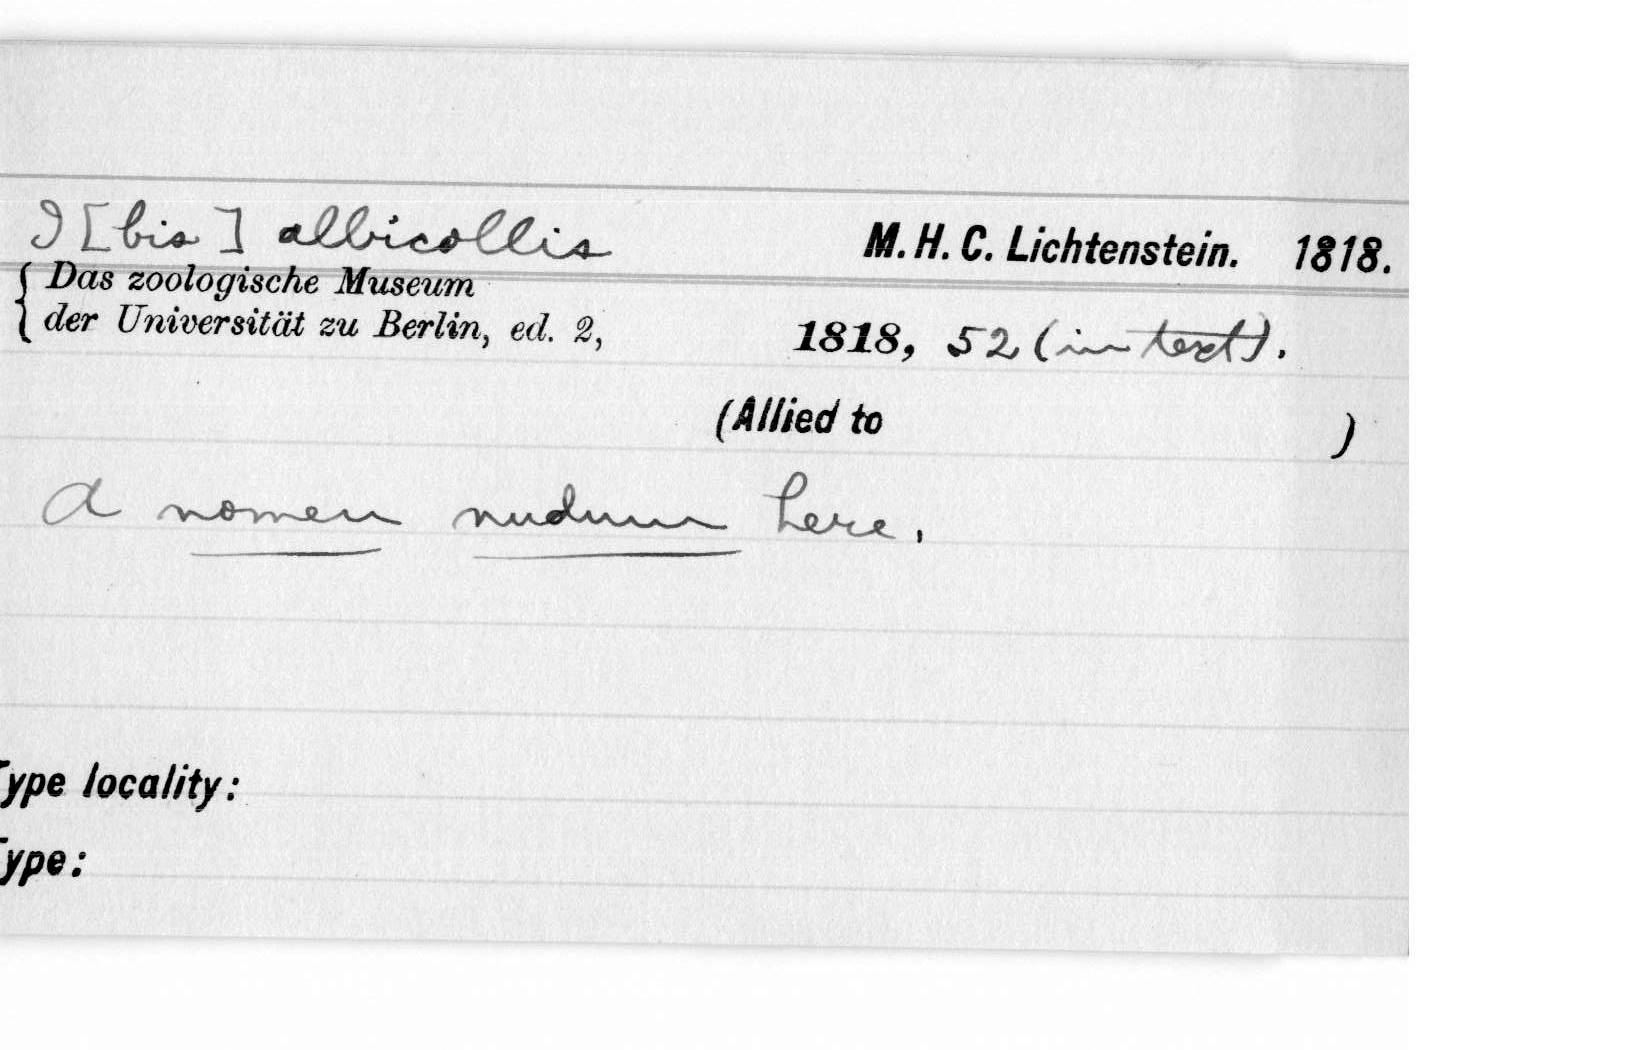 I [bis] albicollis M. H. C. Lichtenstein. 1818.
{ Das zoologische Museum
der Universität zu Berlin, ed. 2, 1818, 52 (in text).
(Allied to )
A nomen nudum here.
Type locality:
Type: